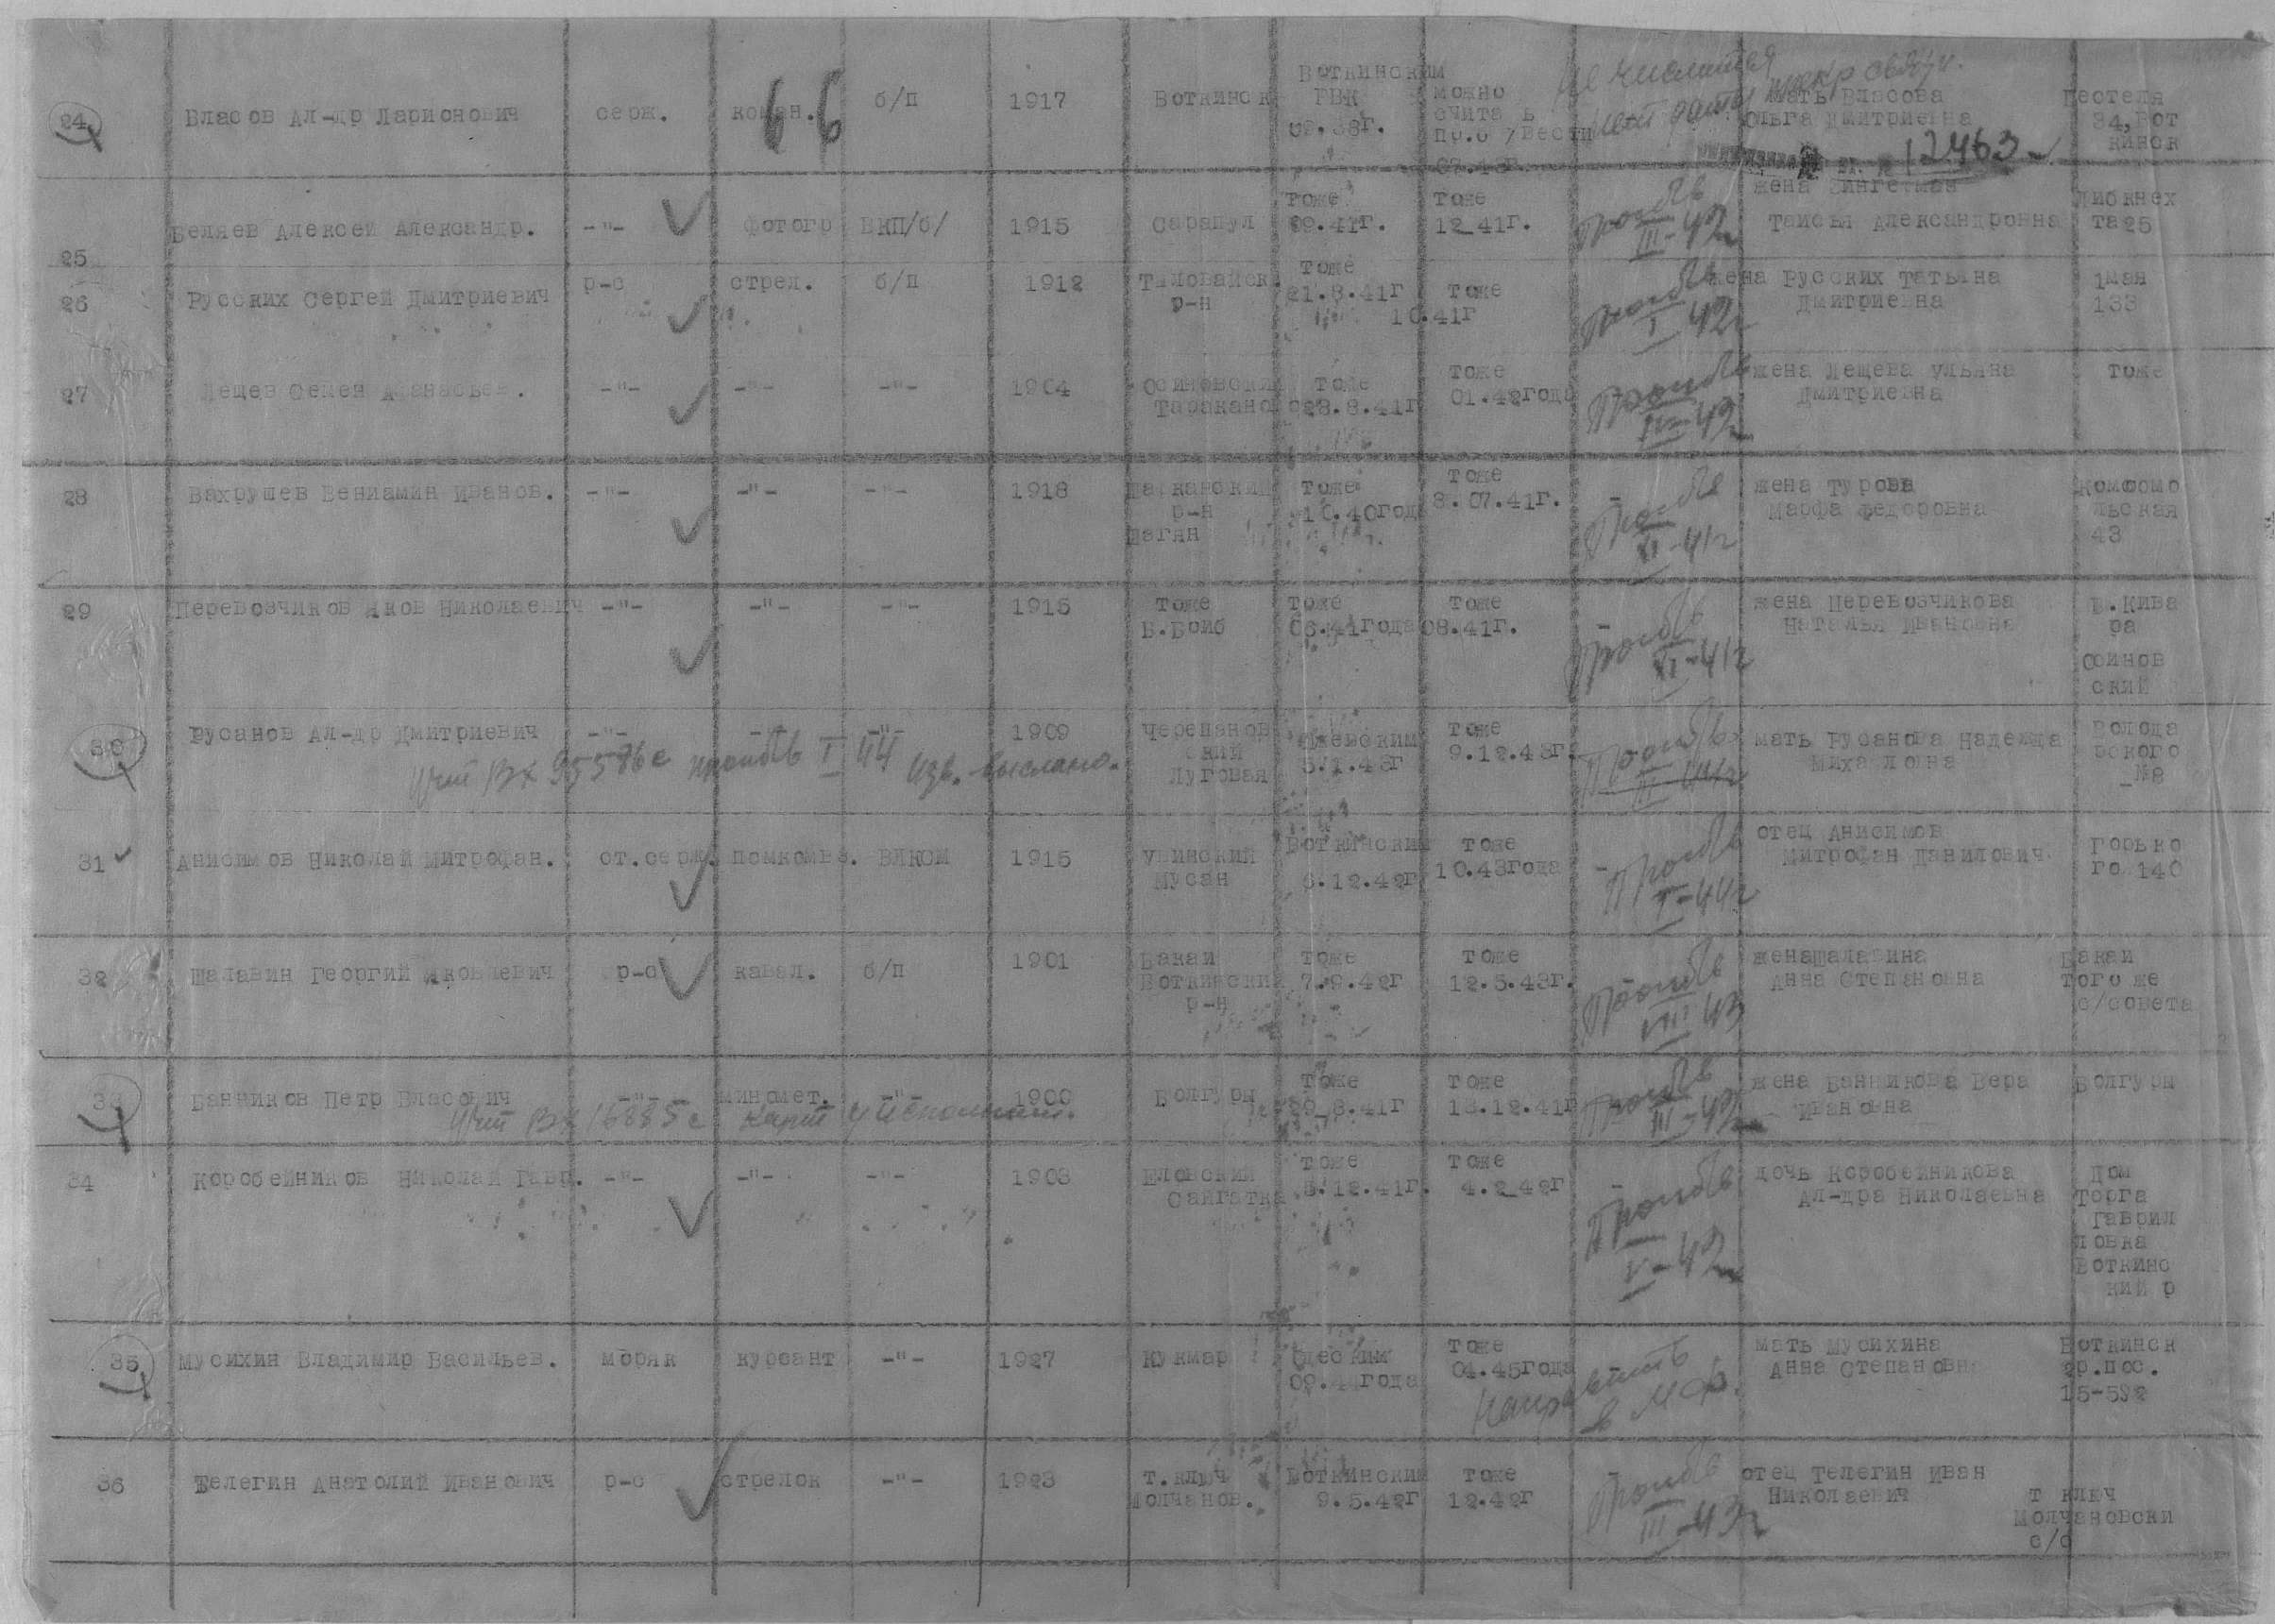 24 Власов Ал-др Ларионович серж. коман. б/п 1917 Воткинск Воткинским РВК 09.38г. можно счита ь пр.б /вести мать Власова Ольга Дмитриевна Пестеля 34, Вот кинск
66
не числится
нет даты прекр связи.
12463
25 Беляев Алексей Александр. -"- фотогр ВКП/б/ 1915 Сарапул тоже 09.41г. тоже 12_41г. Пропбв III-42г жена Таисья Александровна Либкнех та 25
26 Русских Сергей Дмитриевич р-с стрел. б/п 1912 р-н тоже 21.8.41г тоже 10.41г Пропбв I 42г жена Русских Татьяна Дмитриевна 1мая 133
27 Лещев Семен Афанасьев. -"- -"- -"- 1904 Осиновский Таракано тоже 28.8.41г тоже 01.42года Пропбв IV-42г жена Лещева Ульяна Дмитриевна тоже
28 Вахрушев Вениамин Иванов. -"- -"- -"- 1918 Шарканский р-н Шагян тоже 10.40год тоже 8.07.41г. Пропбв XI-41г жена Турова Марфа Федоровна Комсомо льская 43
29 Перевозчиков Яков Николаевич -"- -"- -"- 1915 тоже В.Бойб тоже 06.41года тоже 08.41г. Пропбв XI-41г жена Перевозчикова Наталья Ивановна П.Кива ра Осинов ский
30 Русанов Ал-др Дмитриевич -"- -"- -"- 1909 Черепанов ский Луговая Ижевским 5.1.43г тоже 9.12.43г. Пропбв II 44г мать Русанова Надежда Михайловна Волода рского №8
Учт Вх 95576с пропбв I 44 изв. выслано.
31 Анисимов Николай Митрофан. ст.серж. помкомвз. ВЛКСМ 1915 Увинский Мусан Воткинским 6.12.42г тоже 10.43года Пропбв I-44г отец Анисимов Митрофан Данилович Горько го 140
32 Шалавин Георгий Яковлевич р-с кавал. б/п 1901 Бакаи Воткински р-н тоже 7.9.42г тоже 12.5.43г. Пропбв VIII 43 жена Шалавина Анна Степановна Бакаи того же с/совета
33 Банников Петр Власович -"- миномет. -"- 1900 Болгуры тоже 29_8.41г тоже 13.12.41г Пропбв III-42г жена Банникова Вера Ивановна Болгуры
Учт Вх 16885с карт у исполнит.
34 Коробейников Николай Гавр. -"- -"- -"- 1903 Еловский Сайгатка тоже 5.12.41г. тоже 4.2_42г Пропбв V-42г дочь Коробейникова Ал-дра Николаевна Дом Торга Гаврил ловка Воткинс кий р
35 Мусихин Владимир Васильев. моряк курсант -"- 1927 Кукмар Одесским 09.44года тоже 04.45года Направить в МФ. мать Мусихина Анна Степановна Воткинск гр.пос. 15-592
36 Телегин Анатолий Иванович р-с стрелок -"- 1923 Т.Ключ Молчанов. Воткинским 9.5.42г тоже 12.42г Пропбв III-43г отец Телегин Иван Николаевич Т ключ Молчановски с/с